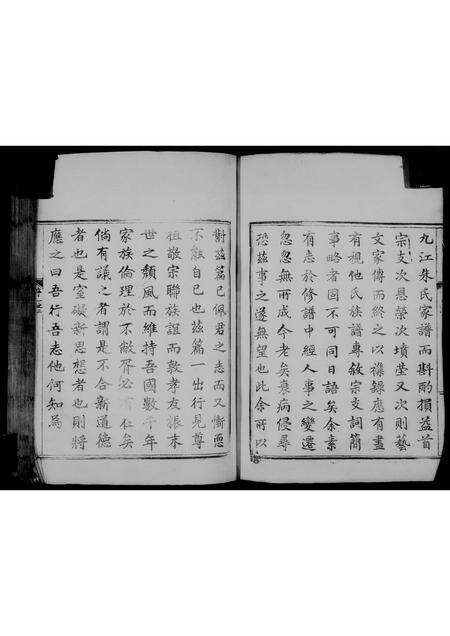 九江朱氏家譜而斟酌損益首
宗支次恩榮次墳塋又次則藝
文家傳而終之以襍錄應有盡
有視他氏族譜專敘宗支詞簡
事略者固不可同日語矣余素
有志於修譜中經人事之變遷
忽忽無所成今老矣衰病侵尋
恐茲事之遂無望也此余所以
對茲篇已佩君之志而又慚恧
不能自已也茲篇一出行見尊
祖敬宗聯族誼而敦孝友振末
世之頹風而維持吾國數千年
家族倫理於不敝胥必有在矣
倘有議之者謂是不合新道德
者也是窒礙新思想者也則將
應之曰吾行吾志他何知焉